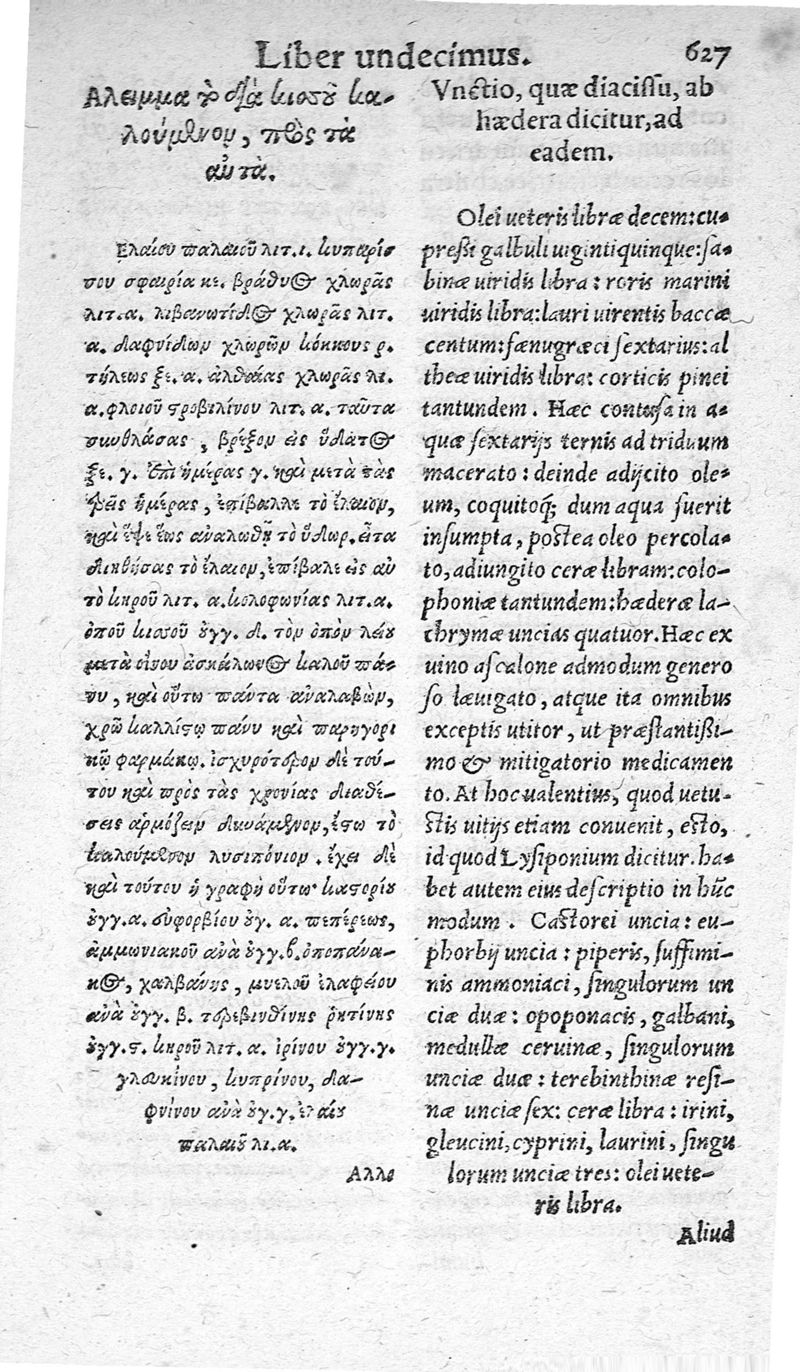 Liber undecimus. 627
Αλειμμα τὸ διὰ κισσοῦ κα-
λούμενον, πρὸς τὰ
αὐτὰ.
Ελαίου παλαιοῦ λιτ. ι. κυπαρίσ
σου σφαιρία κε. βράθυος χλωρᾶς
λιτ. α. λιβανωτίδος χλωρᾶς λιτ.
α. δαφνίδων χλωρῶν κόκκους ρ.
τήλεως ξε. α. ἀλθαίας χλωρᾶς λι.
α. φλοιοῦ στροβιλίνου λιτ. α. ταῦτα
συνθλάσας, βρέξον εἰς ὕδατος
ξε. γ. ἐπὶ ἡμέρας γ. καὶ μετὰ τὰς
τρεῖς ἡμέρας, ἐπίβαλλε τὸ ἔλαιον,
καὶ ἕψε ἕως ἀναλωθῇ τὸ ὕδωρ. εἶτα
διηθήσας τὸ ἔλαιον, ἐπίβαλε εἰς αὐ
τὸ κηροῦ λιτ. α. κολοφωνίας λιτ. α.
ὀποῦ κισσοῦ ογγ. δ. τὸν ὀπὸν λείου
μετὰ οἴνου ἀσκάλωνος καλοῦ πά-
νυ, καὶ οὕτω πάντα ἀναλαβὼν,
χρῶ καλλίστῳ πάνυ καὶ παρηγορι
κῷ φαρμάκῳ. ἰσχυρότερον δὲ τού-
του καὶ πρὸς τὰς χρονίας διαθέ-
σεις ἁρμόζειν δυνάμενον, ἔστω τὸ
καλούμενον λυσιπόνιον. ἔχει δὲ
καὶ τούτου ἡ γραφὴ οὕτω· καστορίου
ογγ. α. εὐφορβίου ογ. α. πεπέρεως,
ἀμμωνιακοῦ ἀνὰ ογγ. β. ὀποπάνα-
κος, χαλβάνης, μυελοῦ ἐλαφείου
ἀνὰ ογγ. β. τερεβινθίνης ῥητίνης
ογγ. ϛ. κηροῦ λιτ. α. ἰρίνου ογγ. γ.
γλευκίνου, κυπρίνου, δα-
φνίνου ἀνὰ ογ. γ. ἐλαίου
παλαιοῦ λι. α.
Αλλο
Vnctio, quæ diacissu, ab
hædera dicitur, ad
eadem.
Olei ueteris libræ decem: cu-
pressi galbuli uiginti quinque: sa-
binæ uiridis libra: roris marini
uiridis libra: lauri uirentis baccæ
centum: fœnugræci sextarius: al
theæ uiridis libra: corticis pinei
tantundem. Hæc contusa in a-
quæ sextarijs ternis ad triduum
macerato: deinde adijcito ole-
um, coquitoq; dum aqua fuerit
insumpta, postea oleo percola-
to, adiungito ceræ libram: colo-
phoniæ tantundem: hæderæ la-
chrymæ uncias quatuor. Hæc ex
uino ascalone admodum genero
so læuigato, atque ita omnibus
exceptis utitor, ut præstantißi-
mo & mitigatorio medicamen
to. At hoc ualentius, quod uetu-
stis uitijs etiam conuenit, esto,
id quod Lysiponium dicitur. ha-
bet autem eius descriptio in hūc
modum. Castorei uncia: eu-
phorbij uncia: piperis, suffimi-
nis ammoniaci, singulorum un
ciæ duæ: opoponacis, galbani,
medullæ ceruinæ, singulorum
unciæ duæ: terebinthinæ resi-
næ unciæ sex: ceræ libra: irini,
gleucini, cyprini, laurini, singu
lorum unciæ tres: olei uete-
ris libra.
Aliud